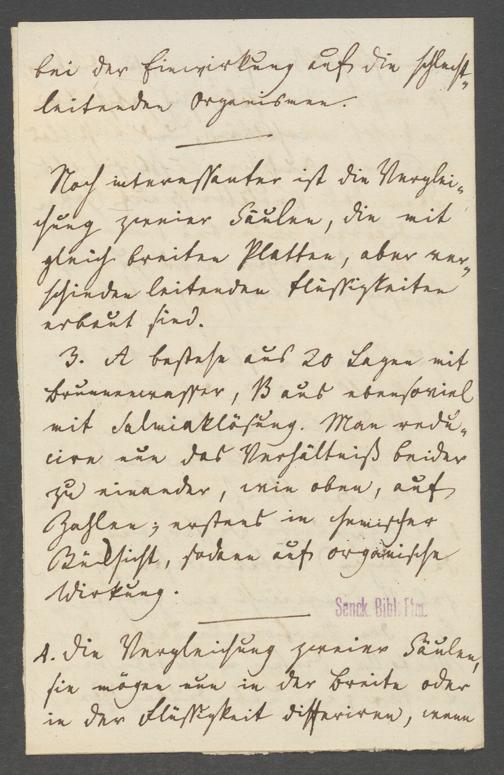 bei der Einwirkung auf die schlecht-
leitenden Organismen.
Noch interessanter ist die Verglei-
chung zweier Säulen, die mit
gleich breiten Platten, aber ver-
schieden leitenden Flüssigkeiten
erbaut sind.
3. A bestehe aus 20 Lagen mit
Brunnenwasser, B aus ebensoviel
mit Salmiaklösung. Man redu-
cire nun das Verhältniß beider
zu einander, wie oben, auf
Zahlen; erstens in chemischer
Rücksicht, sodann auf organische
Wirkung.
Senck. Bibl. Ffm.
4. Die Vergleichung zweier Säulen,
sie mögen nun in der Breite oder
in der Flüssigkeit differiren, wenn